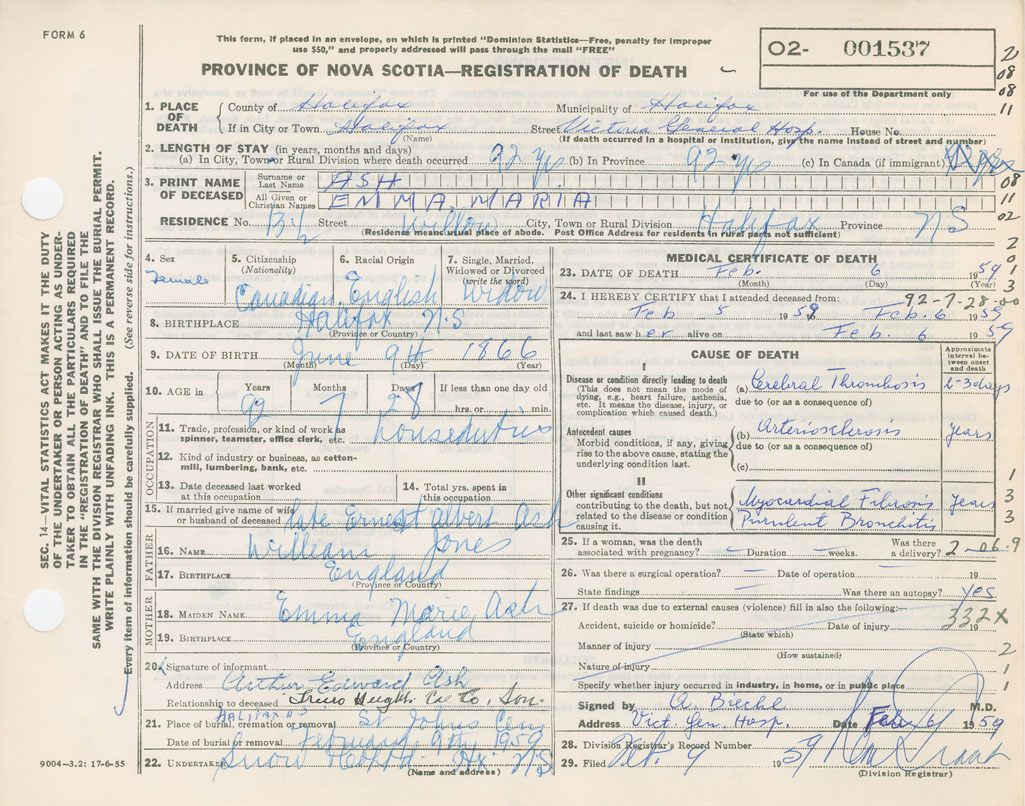 FORM 6
This form, if placed in an envelope, on which is printed "Dominion Statistics—Free, penalty for improper
use $50," and properly addressed will pass through the mail "FREE"
PROVINCE OF NOVA SCOTIA—REGISTRATION OF DEATH
O2- 001537
For use of the Department only
2
08
08
11
1. PLACE OF DEATH
County of Halifax Municipality of Halifax
If in City or Town Halifax Street Victoria General Hosp. House No.
(Name) (If death occurred in a hospital or institution, give the name instead of street and number)
2. LENGTH OF STAY (in years, months and days)
(a) In City, Town or Rural Division where death occurred 92 yrs (b) In Province 92 yrs (c) In Canada (if immigrant)
3. PRINT NAME OF DECEASED
Surname or Last Name ASH
All Given or Christian Names EMMA MARIA
08
11
02
RESIDENCE No. Street Willow City, Town or Rural Division Halifax Province NS
(Residence means usual place of abode. Post Office Address for residents in rural parts not sufficient)
4. Sex Female
5. Citizenship (Nationality) Canadian
6. Racial Origin English
7. Single, Married, Widowed or Divorced (write the word) Widow
8. BIRTHPLACE Halifax N.S
(Province or Country)
9. DATE OF BIRTH June 9th 1866
(Month) (Day) (Year)
10. AGE in Years 92 Months 7 Days 28 If less than one day old
hrs. or min.
OCCUPATION
11. Trade, profession, or kind of work as spinner, teamster, office clerk, etc. houseduties
12. Kind of industry or business, as cotton-mill, lumbering, bank, etc.
13. Date deceased last worked at this occupation
14. Total yrs. spent in this occupation
15. If married give name of wife or husband of deceased late Ernest albert Ash
FATHER
16. NAME William Jones
17. BIRTHPLACE England
(Province or Country)
MOTHER
18. MAIDEN NAME Emma Marie Ash
19. BIRTHPLACE England
(Province or Country)
20. Signature of informant Arthur Edward Ash
Address Truro Heights Col Co.
Relationship to deceased Son.
21. Place of burial, cremation or removal HALIFAX N.S St Johns Cem
Date of burial or removal February 9th 1959
22. UNDERTAKER Snow Hx N S
(Name and address)
9004—3.2: 17-6-55
MEDICAL CERTIFICATE OF DEATH
23. DATE OF DEATH Feb. 6 1959
(Month) (Day) (Year)
24. I HEREBY CERTIFY that I attended deceased from: 92-7-28-00
Feb 5 1959 Feb. 6 1959
and last saw her alive on Feb. 6 1959
CAUSE OF DEATH
Approximate interval between onset and death
I
Disease or condition directly leading to death
(This does not mean the mode of dying, e.g., heart failure, asthenia, etc. It means the disease, injury, or complication which caused death.)
(a) Cerebral Thrombosis 2-3 days
due to (or as a consequence of)
Antecedent causes
Morbid conditions, if any, giving rise to the above cause, stating the underlying condition last.
(b) Arteriosclerosis years
due to (or as a consequence of)
(c)
II
Other significant conditions
contributing to the death, but not related to the disease or condition causing it.
Myocardial Fibrosis years
Purulent Bronchitis
25. If a woman, was the death associated with pregnancy? — Duration — weeks. Was there a delivery? 2-06.9
26. Was there a surgical operation? — Date of operation — 19
State findings Was there an autopsy? yes
27. If death was due to external causes (violence) fill in also the following:—
332X
Accident, suicide or homicide? Date of injury 19
(State which)
Manner of injury
(How sustained)
Nature of injury
Specify whether injury occurred in industry, in home, or in public place
Signed by M.D.
Address Vict. Gen. Hosp. Date Feb 6 1959
28. Division Registrar's Record Number
29. Filed Feb. 9 1959
(Division Registrar)
2
0
1
3
1
3
3
2
1
1
SEC. 14—VITAL STATISTICS ACT MAKES IT THE DUTY
OF THE UNDERTAKER OR PERSON ACTING AS UNDER-
TAKER TO OBTAIN ALL THE PARTICULARS REQUIRED
IN THE "REGISTRATION OF DEATH" AND TO FILE THE
SAME WITH THE DIVISION REGISTRAR WHO SHALL ISSUE THE BURIAL PERMIT.
WRITE PLAINLY WITH UNFADING INK. THIS IS A PERMANENT RECORD.
Every item of information should be carefully supplied. (See reverse side for instructions.)